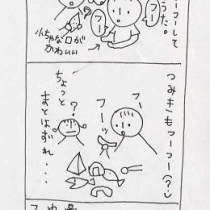 ーフーして
フー
フー
小ちゃな口が
かわいい
つみきもフーフー(?)
フー
フーッ
?
ちょっと
まとはずれ...